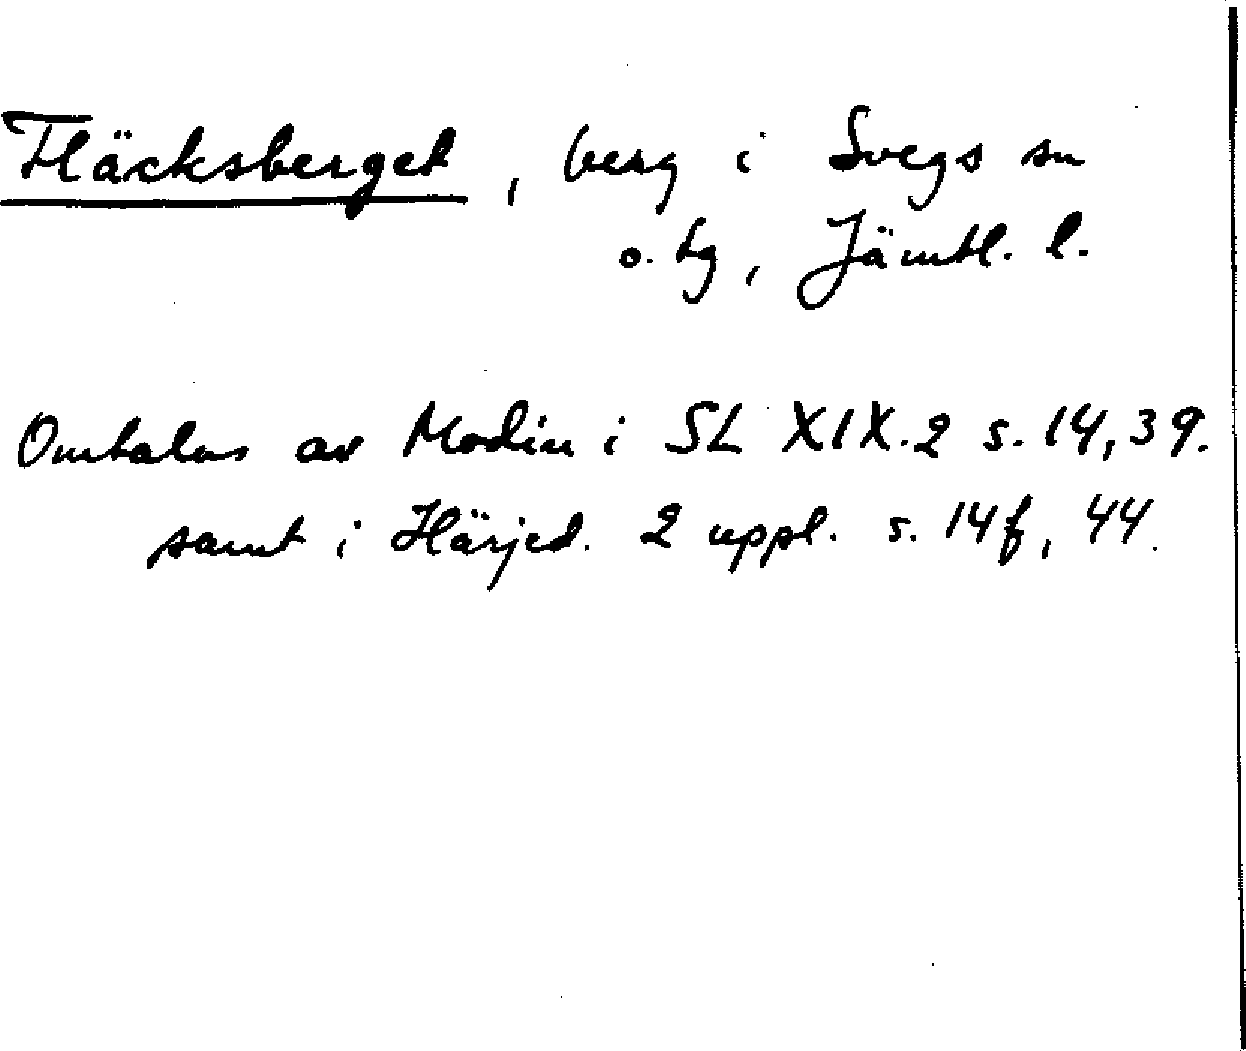 Fläcksberget, berg i Svegs sn
o. tg, Jämtl. l.
Omtalas av Modin i SL XIX.2 s. 14, 39.
samt i Härjed. 2 uppl. s. 14f, 44.